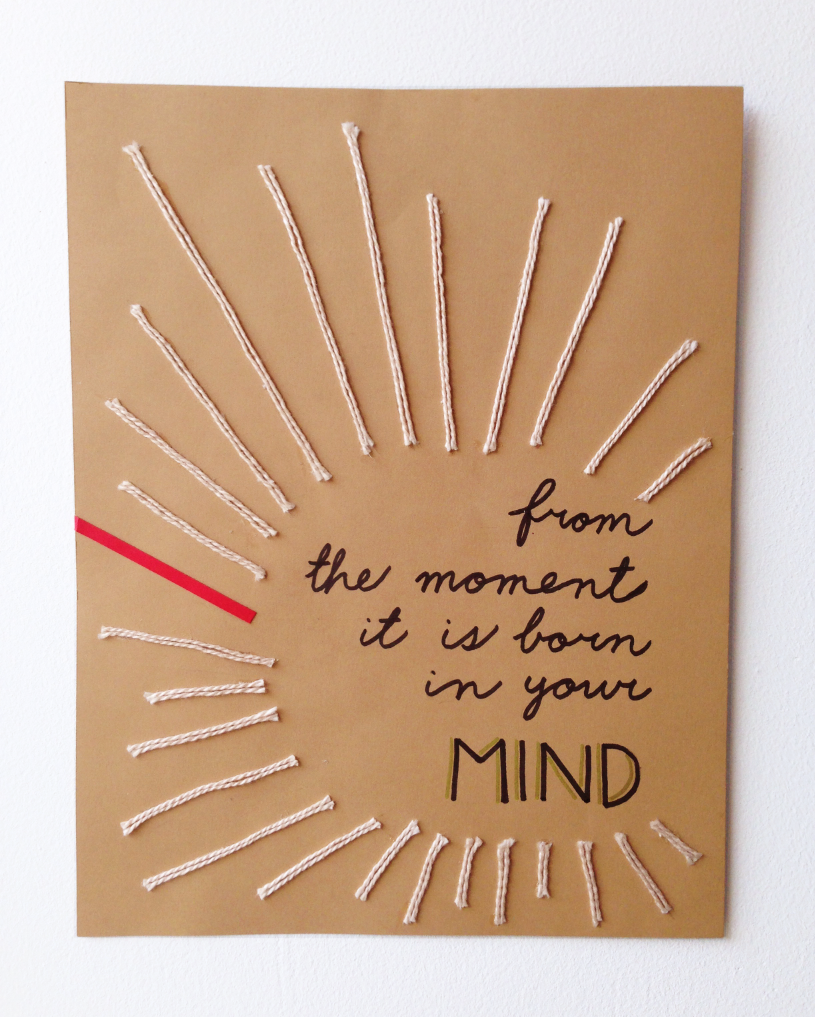 from
the moment
it is born
in your
MIND